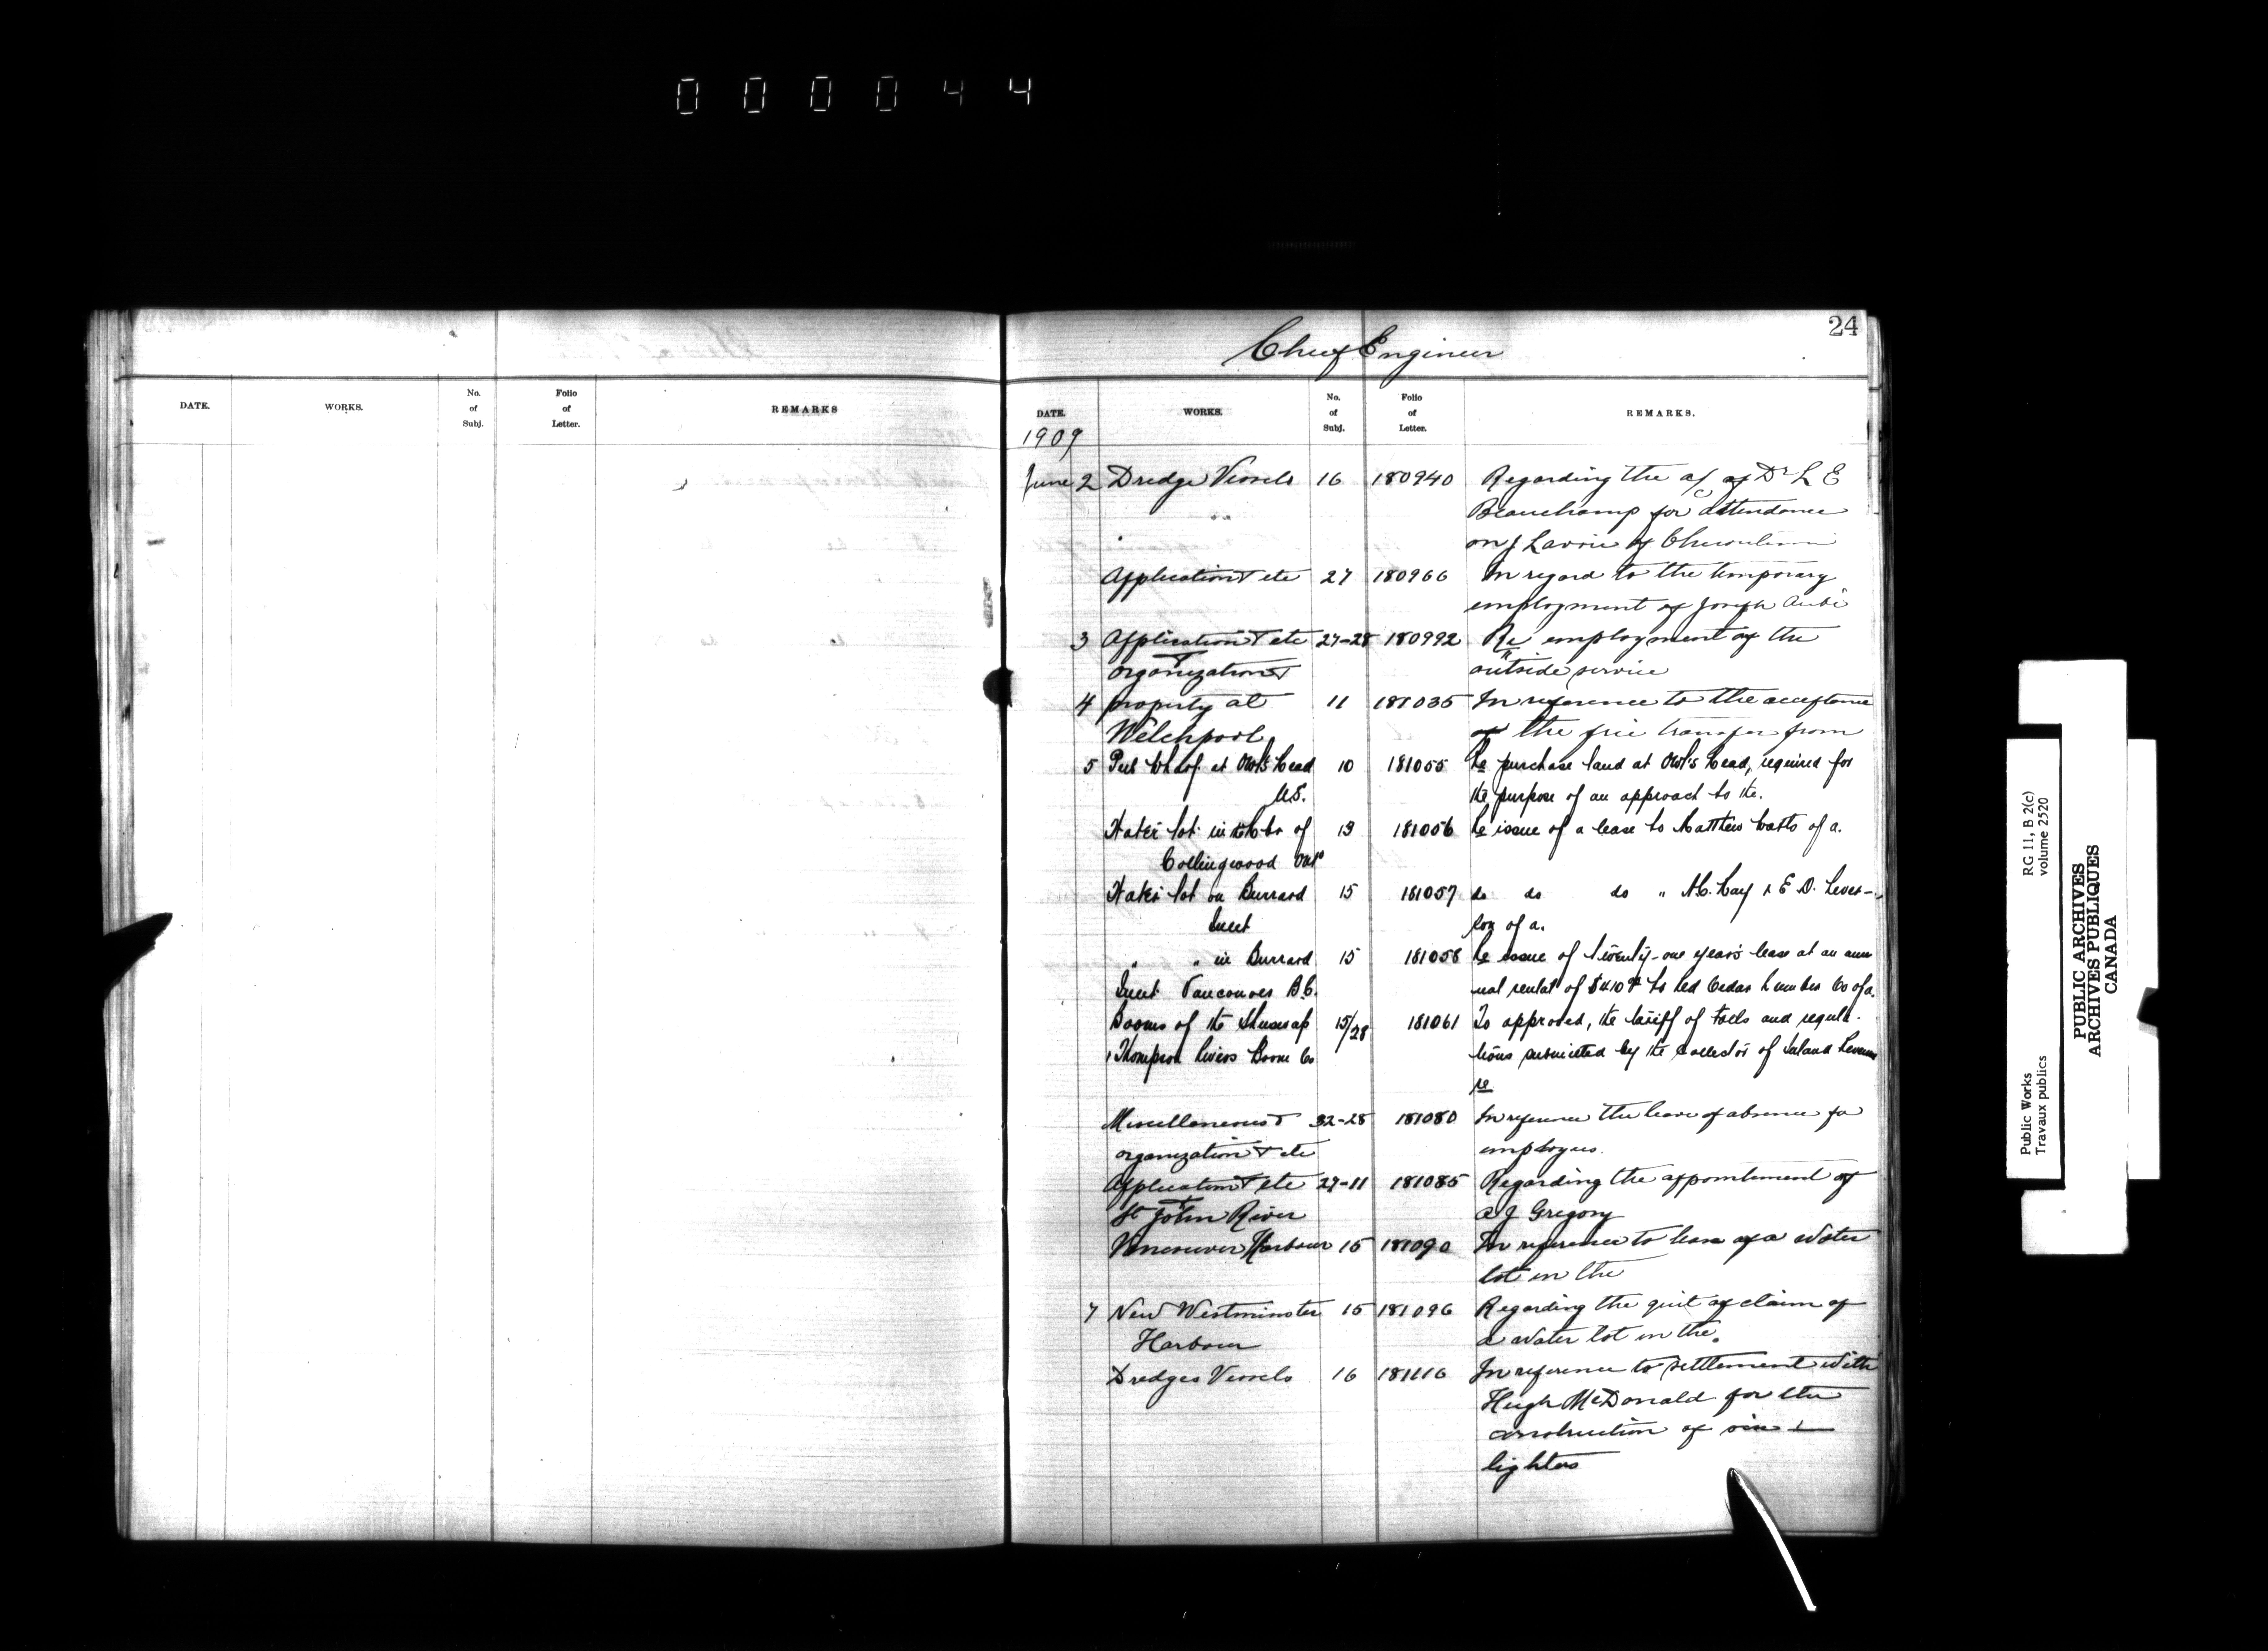 000044
24
Chief Engineer
DATE. WORKS. No. of Subj. Folio of Letter. REMARKS
DATE. WORKS. No. of Subj. Folio of Letter. REMARKS.
1909
June 2 Dredge Vessels 16 180940 Regarding the a/c of Dr L E
Beauchamp for attendance
on J Lavoie of
Application & etc 27 180966 In regard to the temporary
employment of Joseph Aubé
3 Application & etc 27-28 180992 Re employment of the
& organization & outside service
4 property at 11 181035 In reference to the acceptance
Welchpool of the free transfer from
5 Pub Wharf at Owl's Head 10 181055 Re purchase land at Owl's Head, required for
N.S. the purpose of an approach to the.
Water lot in the Hbr of 13 181056 Re issue of a lease to Matthew Watts of a.
Collingwood Ont
Water lot on Burrard 15 181057 do do do " & E. D. Lever-
Inlet son of a.
" " in Burrard 15 181058 Re issue of twenty-one years lease at an ann
Inlet Vancouver B.C. ual rental of to Red Cedar Lumber Co of a.
Booms of the Shuswap 15/28 181061 To approved, the tariff of tolls and regula-
& Thompson Rivers Boom Co tions submitted by the Collector of Inland Revenue
re
Miscellaneous & 32-28 181080 In reference the leave of absence for
organization & etc employees.
Application & etc 27-11 181085 Regarding the appointment of
& St John River A J Gregory
Vancouver Harbour 15 181090 In reference to lease of a water
lot in the
7 New Westminster 15 181096 Regarding the quit of claim of
Harbour a water lot in the.
Dredges Vessels 16 181116 In reference to settlement with
Hugh McDonald for the
construction of
lighters
Public Works RG 11, B 2(c)
Travaux publics volume 2520
PUBLIC ARCHIVES
ARCHIVES PUBLIQUES
CANADA